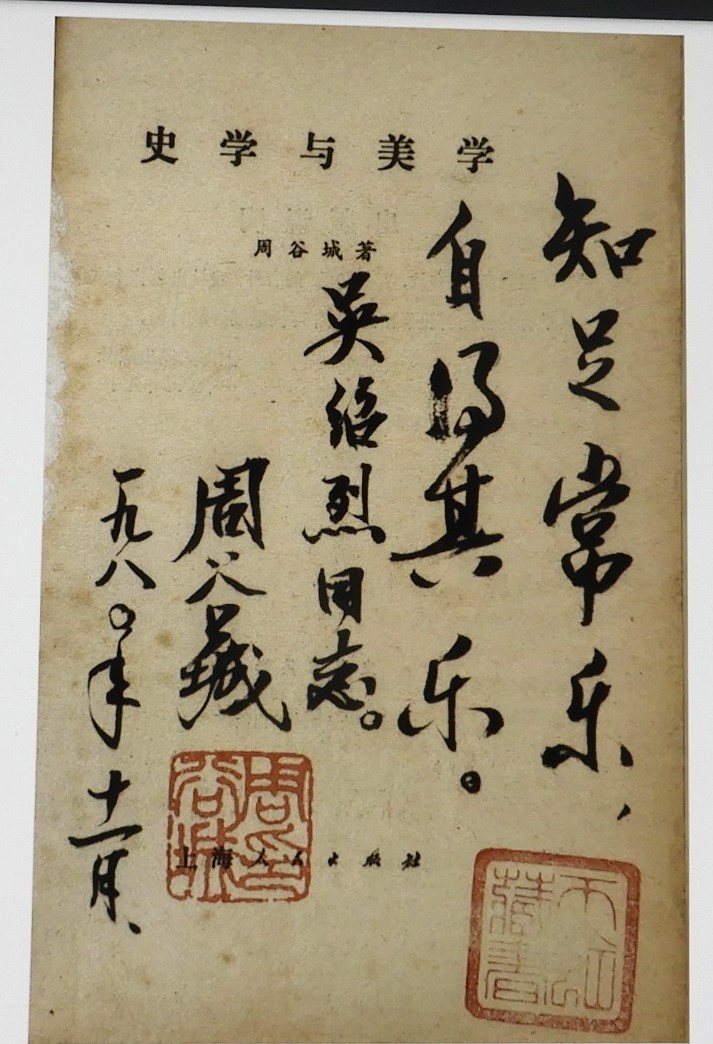 史学与美学
周谷城著
知足常乐，
自得其乐。
吴绍烈同志。
周谷城
一九八〇年
十一月、
上海人民出版社
周谷城印
藏书